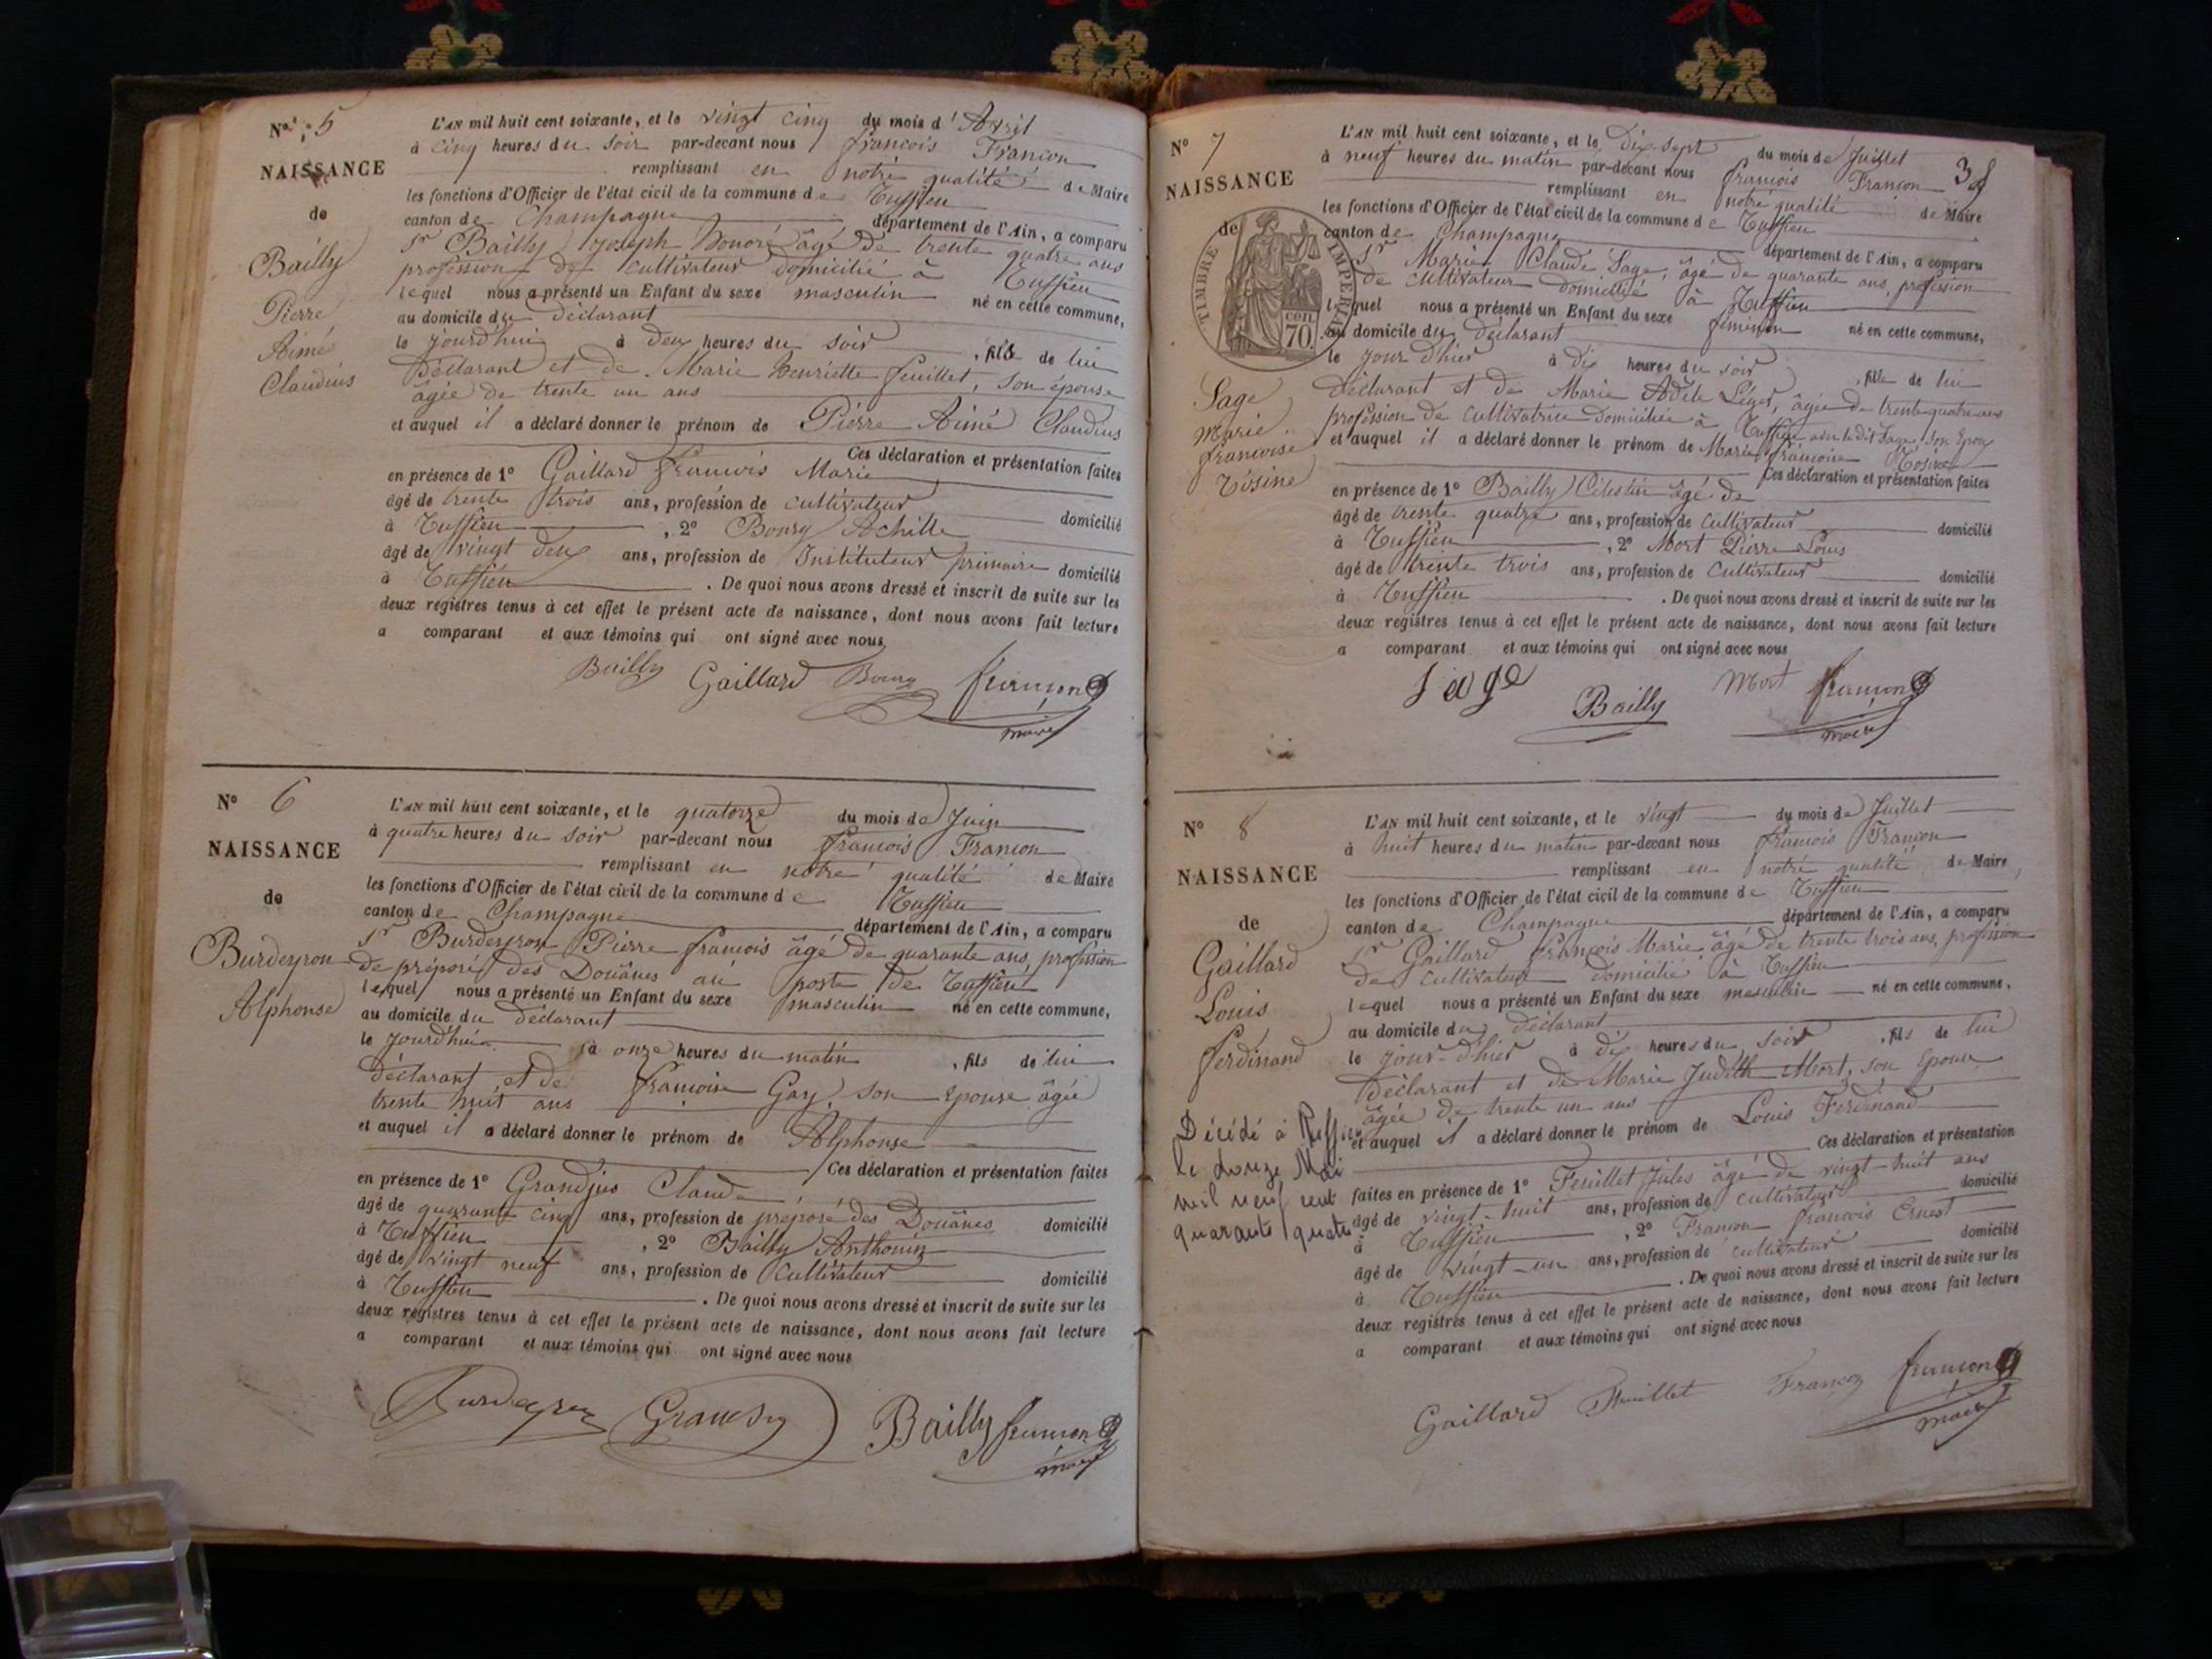 N° 5
NAISSANCE
de
Bailly
Pierre
Aimé
Claudius
L'AN mil huit cent soixante, et le vingt cinq du mois d'Avril
à cinq heures du soir par-devant nous François Françon
remplissant en notre qualité de Maire
les fonctions d'Officier de l'état civil de la commune de
canton de Champagne département de l'Ain, a comparu
Sr Bailly Joseph honoré âgé de trente quatre ans
profession de cultivateur domicilié à
lequel nous a présenté un Enfant du sexe masculin né en cette commune,
au domicile du déclarant
le jourd'hui à deux heures du soir, fils de lui
déclarant et de Marie henriette feuillet, son épouse
âgée de trente un ans
et auquel il a déclaré donner le prénom de Pierre Aimé Claudius
Ces déclaration et présentation faites
en présence de 1° Gaillard françois Marie
âgé de trente trois ans, profession de cultivateur
domicilié
à , 2° Bourg Achille
âgé de vingt deux ans, profession de Instituteur primaire domicilié
à . De quoi nous avons dressé et inscrit de suite sur les
deux registres tenus à cet effet le présent acte de naissance, dont nous avons fait lecture
a comparant et aux témoins qui ont signé avec nous
Bailly Gaillard Bourg françon
maire
N° 6
NAISSANCE
de
Burdeyron
Alphonse
L'AN mil huit cent soixante, et le quatorze du mois de Juin
à quatre heures du soir par-devant nous François Françon
remplissant en notre qualité de Maire
les fonctions d'Officier de l'état civil de la commune de
canton de Champagne département de l'Ain, a comparu
Sr Burdeyron Pierre françois âgé de quarante ans, profession
de préposé des Douânes au poste de
lequel nous a présenté un Enfant du sexe masculin né en cette commune,
au domicile du déclarant
le jourd'hui à onze heures du matin, fils de lui
déclarant, et de françoise Gay, son épouse âgée
trente huit ans
et auquel il a déclaré donner le prénom de Alphonse
Ces déclaration et présentation faites
en présence de 1° Grandjus Claude
âgé de quarante cinq ans, profession de préposé des Douânes domicilié
à , 2° Bailly Anthonin
âgé de vingt neuf ans, profession de cultivateur
domicilié
à . De quoi nous avons dressé et inscrit de suite sur les
deux registres tenus à cet effet le présent acte de naissance, dont nous avons fait lecture
a comparant et aux témoins qui ont signé avec nous
Burdeyron Bailly françon
maire
N° 7
38
NAISSANCE
de
TIMBRE IMPERIAL
70 cen.
Sage
Marie
françoise
L'AN mil huit cent soixante, et le dix sept du mois de Juillet
à neuf heures du matin par-devant nous François Françon
remplissant en notre qualité de Maire
les fonctions d'Officier de l'état civil de la commune de
canton de Champagne département de l'Ain, a comparu
Sr Marie Claude Sage, âgé de quarante ans, profession
de cultivateur domicilié à
lequel nous a présenté un Enfant du sexe féminin né en cette commune,
au domicile du déclarant
le jour d'hier à dix heures du soir, fille de lui
déclarant et de Marie Adèle Léger, âgée de trente quatre ans
profession de cultivatrice domiciliée à avec le dit Sage, son époux
et auquel il a déclaré donner le prénom de Marie françoise
Ces déclaration et présentation faites
en présence de 1° Bailly Célestin âgé de
âgé de trente quatre ans, profession de cultivateur
domicilié
à , 2° Mort Pierre Louis
âgé de trente trois ans, profession de cultivateur domicilié
à . De quoi nous avons dressé et inscrit de suite sur les
deux registres tenus à cet effet le présent acte de naissance, dont nous avons fait lecture
a comparant et aux témoins qui ont signé avec nous
Sage Bailly Mort françon
maire
N° 8
NAISSANCE
de
Gaillard
Louis
ferdinand
Décédé à Ruffieu
le douze Mai
mil neuf cent
quarante quatre
L'AN mil huit cent soixante, et le vingt du mois de Juillet
à huit heures du matin par-devant nous François Françon
remplissant en notre qualité de Maire
les fonctions d'Officier de l'état civil de la commune de
canton de Champagne département de l'Ain, a comparu
Sr Gaillard françois Marie âgé de trente trois ans, profession
de cultivateur domicilié à
lequel nous a présenté un Enfant du sexe masculin né en cette commune,
au domicile du déclarant
le jour-d'hier à dix heures du soir, fils de lui
déclarant et de Marie Judith Mort, son épouse
âgée de trente un ans
et auquel il a déclaré donner le prénom de Louis Ferdinand
Ces déclaration et présentation
faites en présence de 1° Feuillet Jules âgé de vingt-huit ans
âgé de vingt-huit ans, profession de cultivateur domicilié
à , 2° Françon françois Ernest
âgé de vingt-un ans, profession de cultivateur domicilié
à . De quoi nous avons dressé et inscrit de suite sur les
deux registres tenus à cet effet le présent acte de naissance, dont nous avons fait lecture
a comparant et aux témoins qui ont signé avec nous
Gaillard Feuillet Françon françon
maire